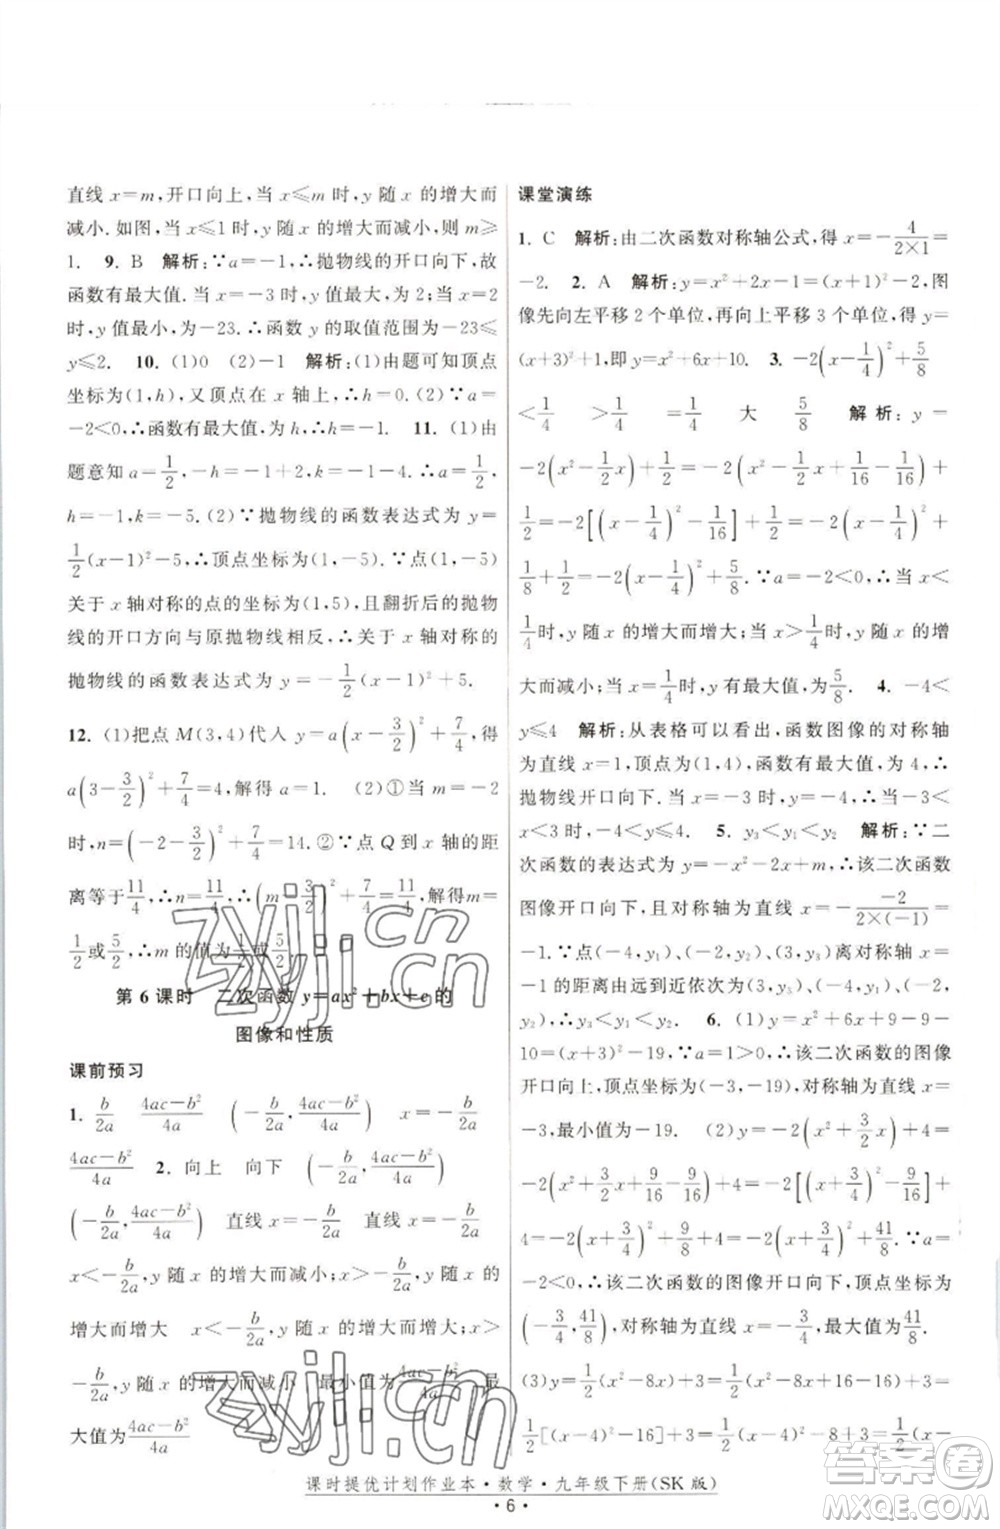 直线 x=m,开口向上,当 x≤m 时,y 随 x 的增大而
减小. 当 x≤1 时,y 随 x 的增大而减小,则 m≥
1. 9. B 解析:∵a=-1,∴抛物线的开口向下,故
函数有最大值. 当 x=-3 时,y 值最大,为 2;当 x=2
时,y 值最小,为-23. ∴函数 y 的取值范围为-23≤
y≤2. 10. (1)0 (2)-1 解析:(1)由题可知顶点
坐标为(1,h),又顶点在 x 轴上,∴h=0. (2)∵a=
-2<0,∴函数有最大值,为 h,∴h=-1. 11. (1)由
题意知 a=1/2,-h=-1+2,k=1-4. ∴a=1/2,
h=-1,k=-5. (2)∵抛物线的函数表达式为 y=
1/2(x-1)²-5,∴顶点坐标为(1,-5). ∵点(1,-5)
关于 x 轴对称的点的坐标为(1,5),且翻折后的抛物
线的开口方向与原抛物线相反,∴关于 x 轴对称的
抛物线的函数表达式为 y=-1/2(x-1)²+5.
12. (1)把点 M(3,4)代入 y=a(x-3/2)²+7/4,得
a(3-3/2)²+7/4=4,解得 a=1. (2)①当 m=-2
时,n=(-2-3/2)²+7/4=14. ②∵点 Q 到 x 轴的距
离等于11/4,∴n=11/4. ∴(m-3/2)²+7/4=11/4,解得 m=
1/2或5/2,∴m 的值为1/2或5/2.
第 6 课时 二次函数 y=ax²+bx+c 的
图像和性质
课前预习
1. -b/2a (4ac-b²)/4a (-b/2a,(4ac-b²)/4a) x=-b/2a
(4ac-b²)/4a 2. 向上 向下 (-b/2a,(4ac-b²)/4a)
(-b/2a,(4ac-b²)/4a) 直线 x=-b/2a 直线 x=-b/2a
x<-b/2a,y 随 x 的增大而减小;x>-b/2a,y 随 x 的
增大而增大 x<-b/2a,y 随 x 的增大而增大;x>
-b/2a,y 随 x 的增大而减小 最小值为(4ac-b²)/4a 最
大值为(4ac-b²)/4a
课堂演练
1. C 解析:由二次函数对称轴公式,得 x=-4/(2×1)=
-2. 2. A 解析:∵y=x²+2x-1=(x+1)²-2,图
像先向左平移 2 个单位,再向上平移 3 个单位,得 y=
(x+3)²+1,即 y=x²+6x+10. 3. -2(x-1/4)²+5/8
<1/4 >1/4 1/4 大 5/8 解析:y=
-2(x²-1/2x)+1/2=-2(x²-1/2x+1/16-1/16)+
1/2=-2[(x-1/4)²-1/16]+1/2=-2(x-1/4)²+
1/8+1/2=-2(x-1/4)²+5/8. ∵a=-2<0,∴当 x<
1/4时,y 随 x 的增大而增大;当 x>1/4时,y 随 x 的增
大而减小;当 x=1/4时,y 有最大值,为5/8. 4. -4<
y≤4 解析:从表格可以看出,函数图像的对称轴
为直线 x=1,顶点为(1,4),函数有最大值,为 4,∴
抛物线开口向下. ∴当 0<x<3 时,-4<y≤4. 5. y₃<y₁<y₂ 解析:∵二
次函数的表达式为 y=-x²-2x+m,∴该二次函数
图像开口向下,且对称轴为直线 x=-(-2)/(2×(-1))=
-1. ∵点(-3,y₁),(-2,y₂),(3,y₃)离对称轴 x=
-1 由远及近依次为(3,y₃),(-3,y₁),(-2,y₂),
∴y₃<y₁<y₂. 6. (1)y=x²+6x+9-9-
10=(x+3)²-19,∵a=1>0,∴该二次函数的图像
开口向上,顶点坐标为(-3,-19),对称轴为直线 x=
-3,最小值为-19. (2)y=-2(x²+3/2x)+4=
-2(x²+3/2x+9/16-9/16)+4=-2[(x+3/4)²-9/16]+
4=-2(x+3/4)²+9/8+4=-2(x+3/4)²+41/8. ∵a=
-2<0,∴该二次函数的图像开口向下,顶点坐标为
(-3/4,41/8),对称轴为直线 x=-3/4,最大值为41/8.
(3)y=1/2(x²-8x)+3=1/2(x²-8x+16-16)+3=
1/2[(x-4)²-16]+3=1/2(x-4)²-8+3=1/2(x-
课时提优计划作业本·数学·九年级下册(SK 版)
· 6 ·
zyjl.cn
zyjl.cn
作业精灵